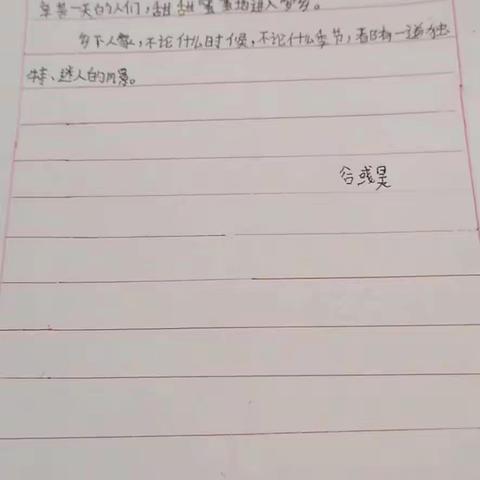 辛苦一天的人们,甜甜蜜蜜地进入梦乡。
乡下人家,不论什么时候,不论什么季节,都有一道独
特、迷人的风景。
谷彧昊